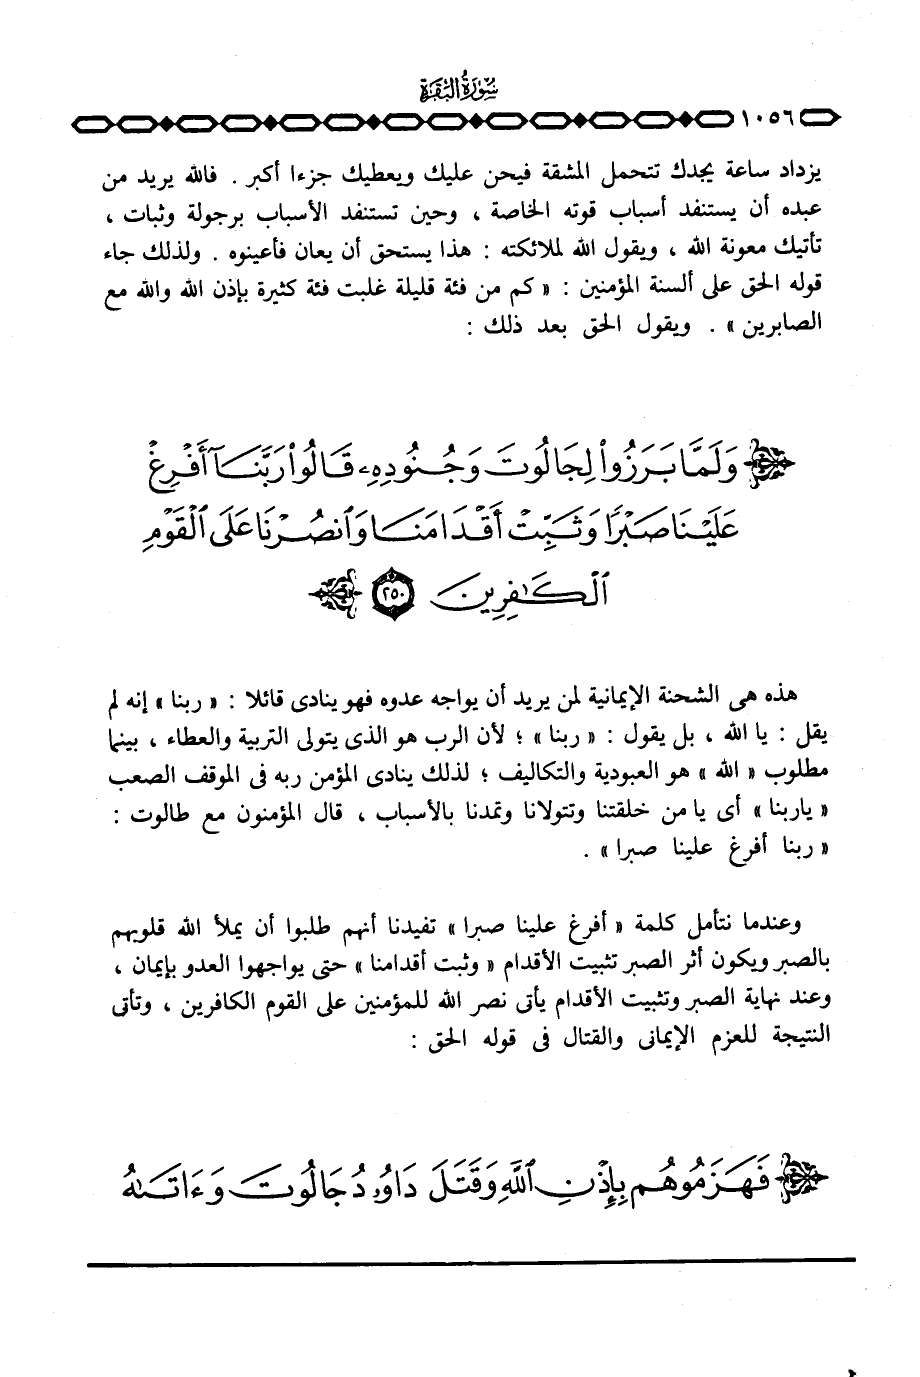 سورة البقرة
١٠٥٦
يزداد ساعة يجدك تتحمل المشقة فيحن عليك ويعطيك جزءا أكبر . فالله يريد من
عبده أن يستنفد أسباب قوته الخاصة ، وحين تستنفد الأسباب برجولة وثبات ،
تأتيك معونة الله ، ويقول الله لملائكته : هذا يستحق أن يعان فأعينوه . ولذلك جاء
قوله الحق على ألسنة المؤمنين : « كم من فئة قليلة غلبت فئة كثيرة بإذن الله والله مع
الصابرين » . ويقول الحق بعد ذلك :
وَلَمَّا بَرَزُوا۟ لِجَالُوتَ وَجُنُودِهِۦ قَالُوا۟ رَبَّنَآ أَفْرِغْ
عَلَيْنَا صَبْرًا وَثَبِّتْ أَقْدَامَنَا وَٱنصُرْنَا عَلَى ٱلْقَوْمِ
ٱلْكَـٰفِرِينَ ٢٥٠
هذه هى الشحنة الإيمانية لمن يريد أن يواجه عدوه فهو ينادى قائلا : « ربنا » إنه لم
يقل : يا الله ، بل يقول : « ربنا » ؛ لأن الرب هو الذى يتولى التربية والعطاء ، بينما
مطلوب « الله » هو العبودية والتكاليف ؛ لذلك ينادى المؤمن ربه فى الموقف الصعب
« ياربنا » أى يا من خلقتنا وتتولانا وتمدنا بالأسباب ، قال المؤمنون مع طالوت :
« ربنا أفرغ علينا صبرا » .
وعندما نتأمل كلمة « أفرغ علينا صبرا » تفيدنا أنهم طلبوا أن يملأ الله قلوبهم
بالصبر ويكون أثر الصبر تثبيت الأقدام « وثبت أقدامنا » حتى يواجهوا العدو بإيمان ،
وعند نهاية الصبر وتثبيت الأقدام يأتى نصر الله للمؤمنين على القوم الكافرين ، وتأتى
النتيجة للعزم الإيمانى والقتال فى قوله الحق :
فَهَزَمُوهُم بِإِذْنِ ٱللَّهِ وَقَتَلَ دَاوُۥدُ جَالُوتَ وَءَاتَىٰهُ